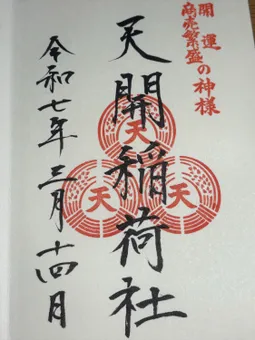 開運
商売繁盛の神様
天開稲荷社
天
天
天
令和七年三月十四日